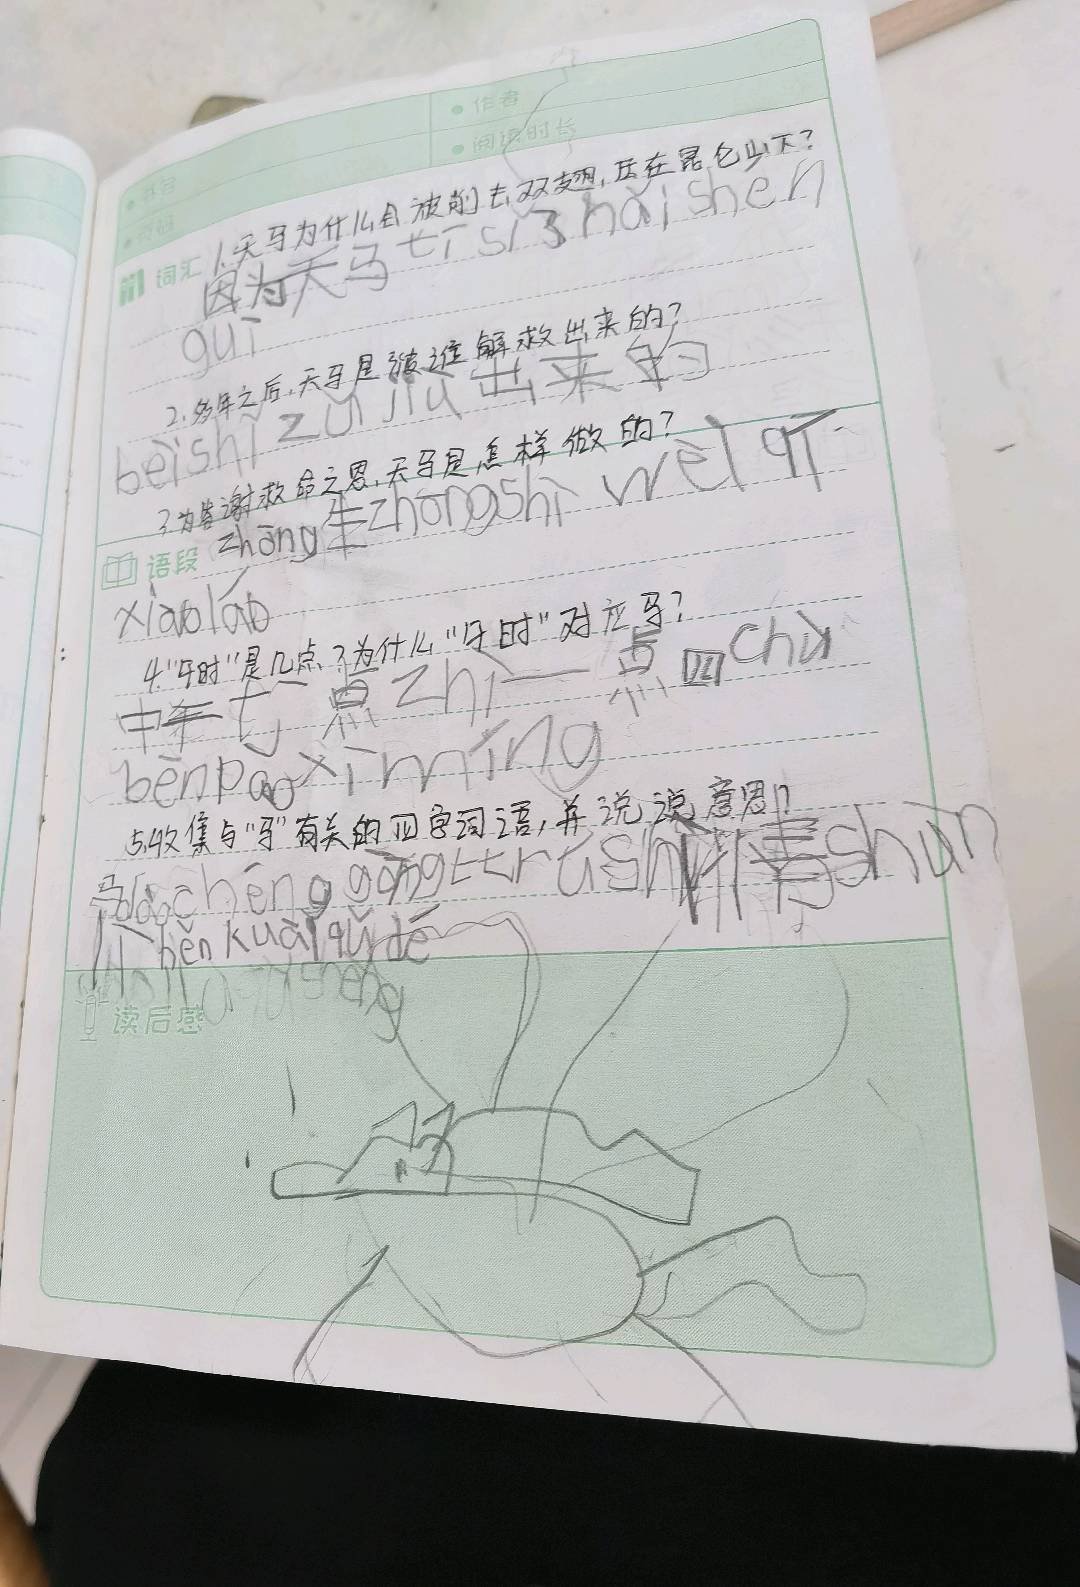 作者
阅读时长
书名
1.天马为什么会被削去双翅,压在昆仑山下?
词汇
因为天马tī sǐ了hǎi shén
guī
2.多年之后,天马是被谁解救出来的?
bèi shǐ zǔ jiù出来的
3.为答谢救命之恩,天马是怎样做的?
语段
zhōng生zhōng shì wèi qī
xiào láo
4."午时"是几点?为什么"午时"对应马?
中午十一点zhì一点 四chù
bēn pǎo xī míng
5.收集与"马"有关的四字词语,并说说意思?
马dào chéng gōng
shì情shùn
lì hěn kuài qǔ dé
shèng
读后感